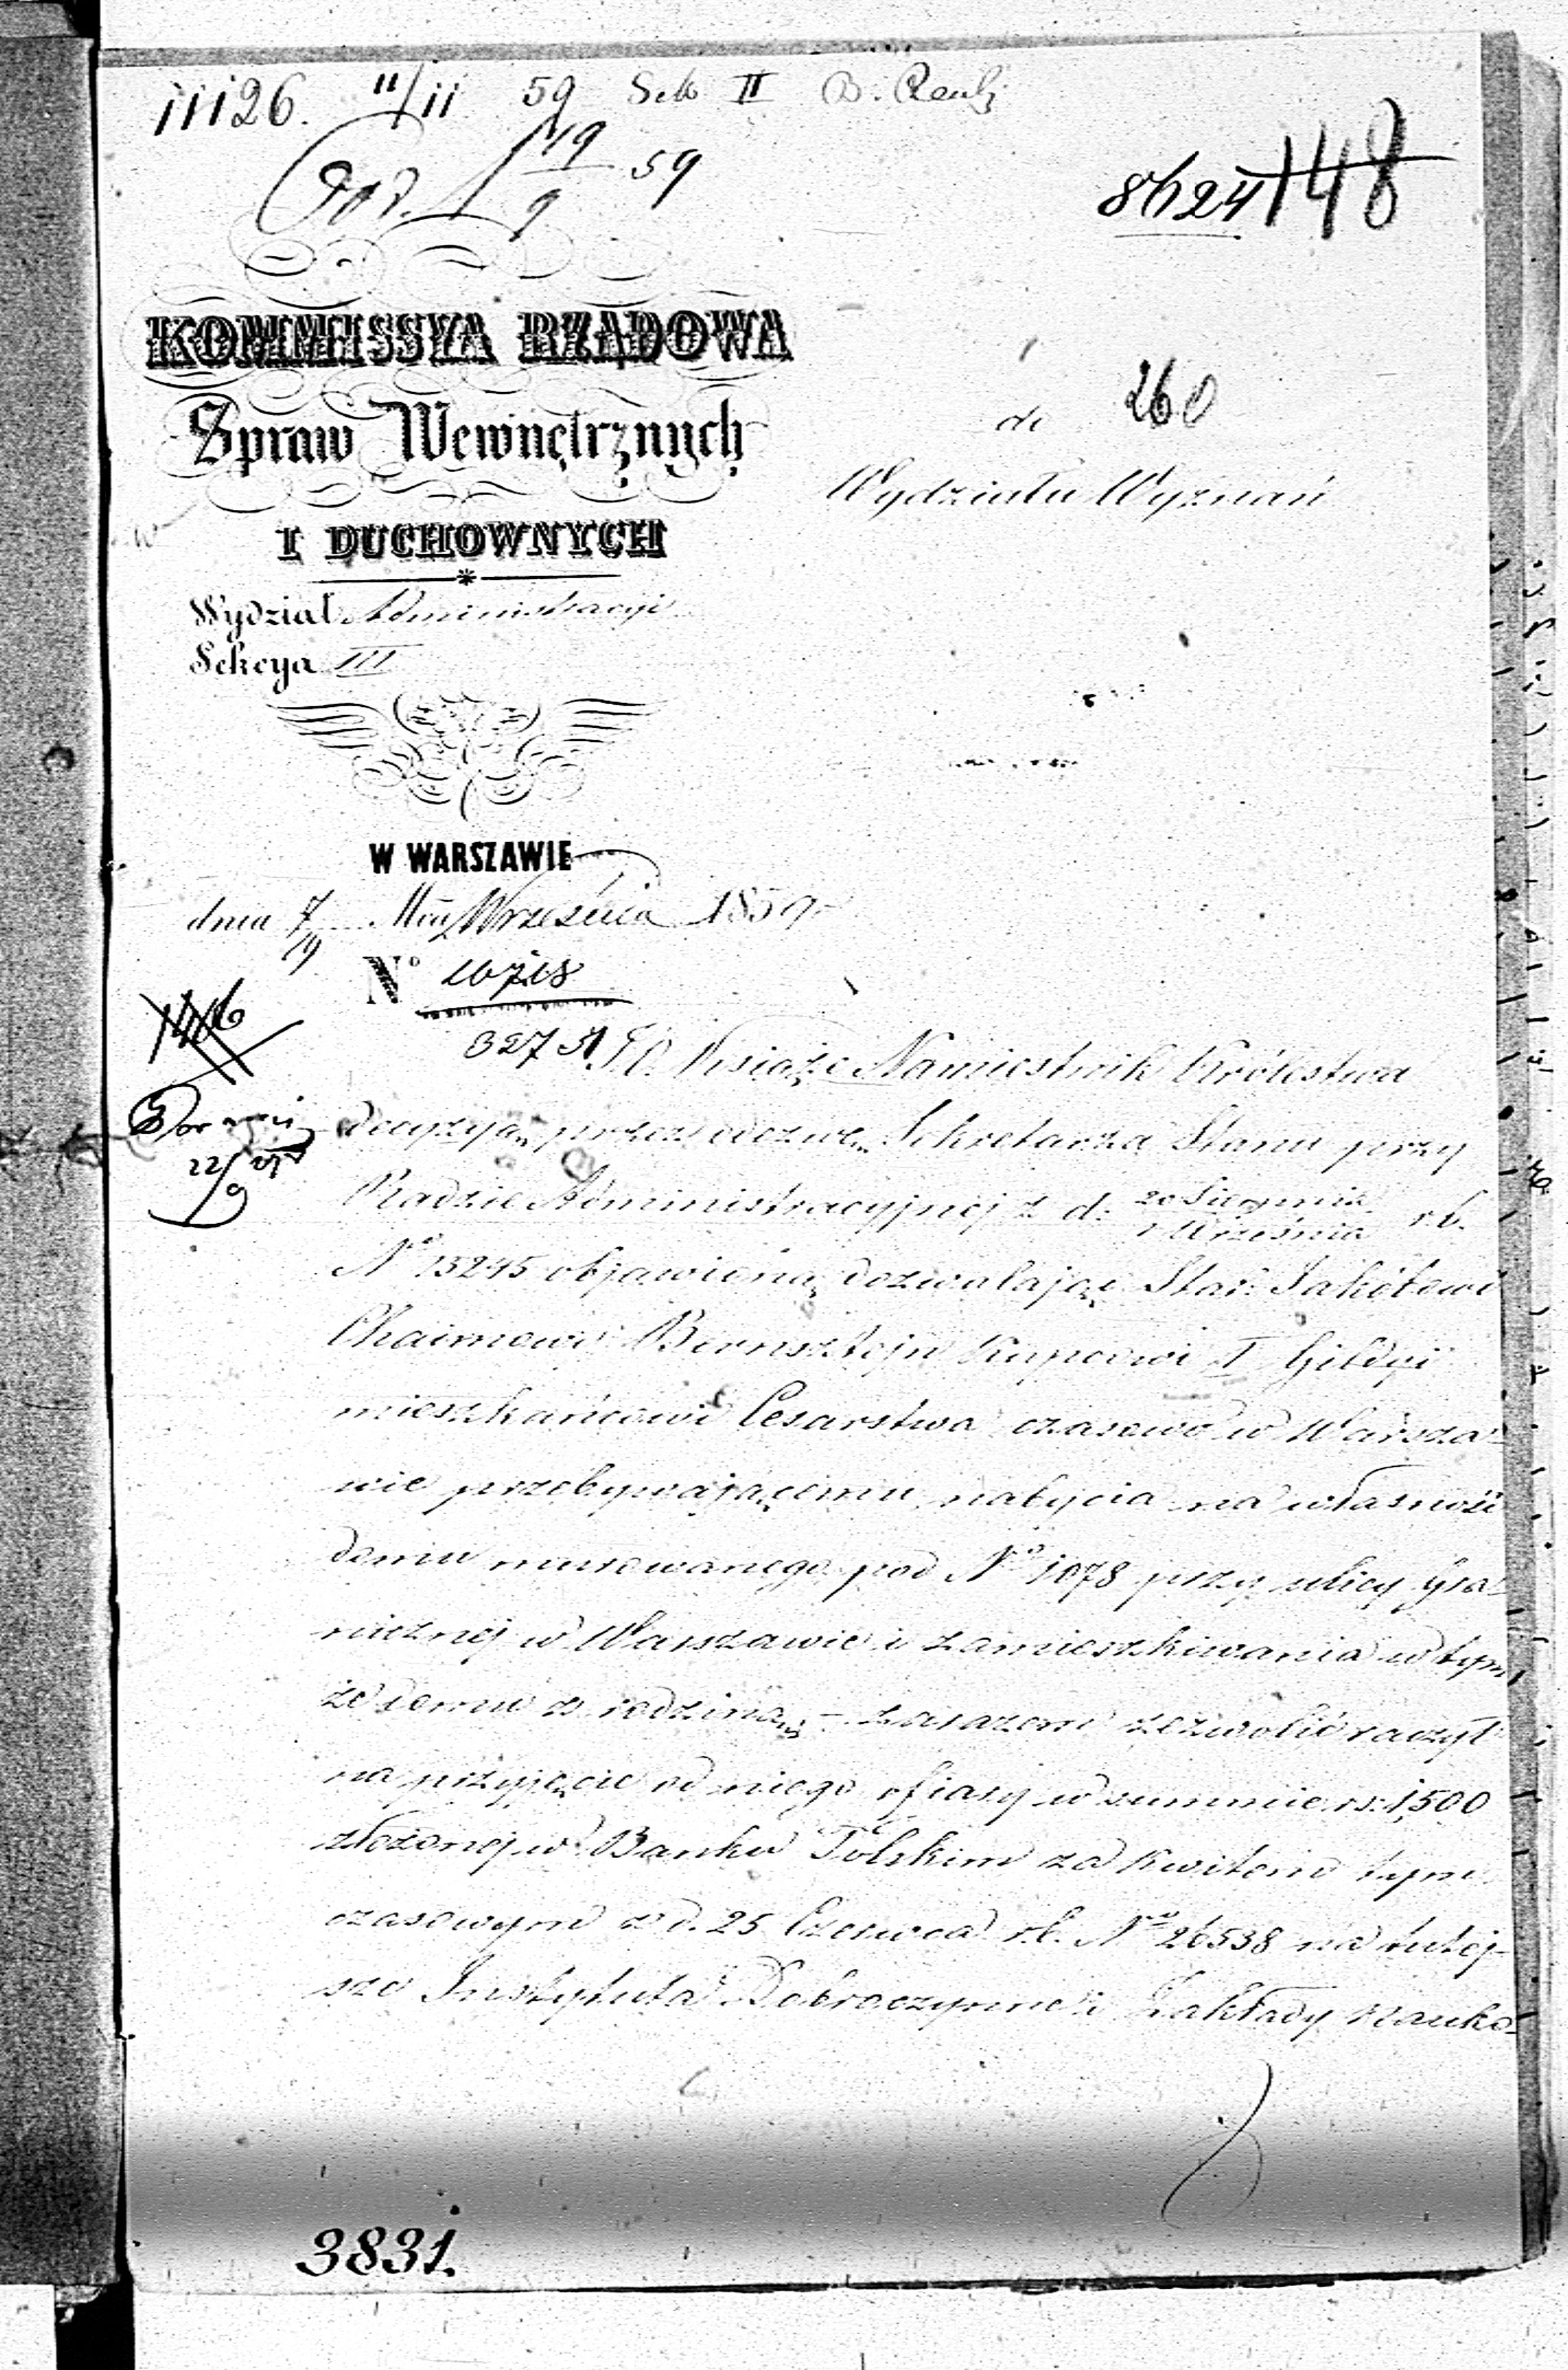 11126. 11/11 59 Sek II
19/9 59
148
8624
KOMMISSYA RZĄDOWA
Spraw Wewnętrznych
I DUCHOWNYCH
Wydział Administracyi
Sekcya III
do 260
Wydziału Wyznań
W WARSZAWIE
dnia 7/19 Mca Września 1859 r.
N° 10718
32751
22/9
J.O. Książe Namiestnik Królestwa
decyzyą, przez odezwę Sekretarza Stanu przy
Radzie Administracyjnej z d: 20 Sierpnia / 1 Września r.b.
N° 15245 objawioną, dozwalając Star:
Chaimowi Bernsztejn Kupcowi I Gildyi
mieszkańcowi Cesarstwa czasowo w Warsza-
wie przebywającemu, nabycia na własność
domu murowanego pod N° 1078 przy ulicy Gra-
nicznej w Warszawie i zamieszkiwania w tym
że domu z rodziną, – zarazem zezwolić raczył
na przyjęcie od niego ofiary w summie rs: 1,500
złożonej w Banku Polskim za Kwitem tym
czasowym z d. 25 Czerwca r.b. N° 26538 na tutej-
sze Instytuta Dobroczynne i Zakłady Nauko-
3831.